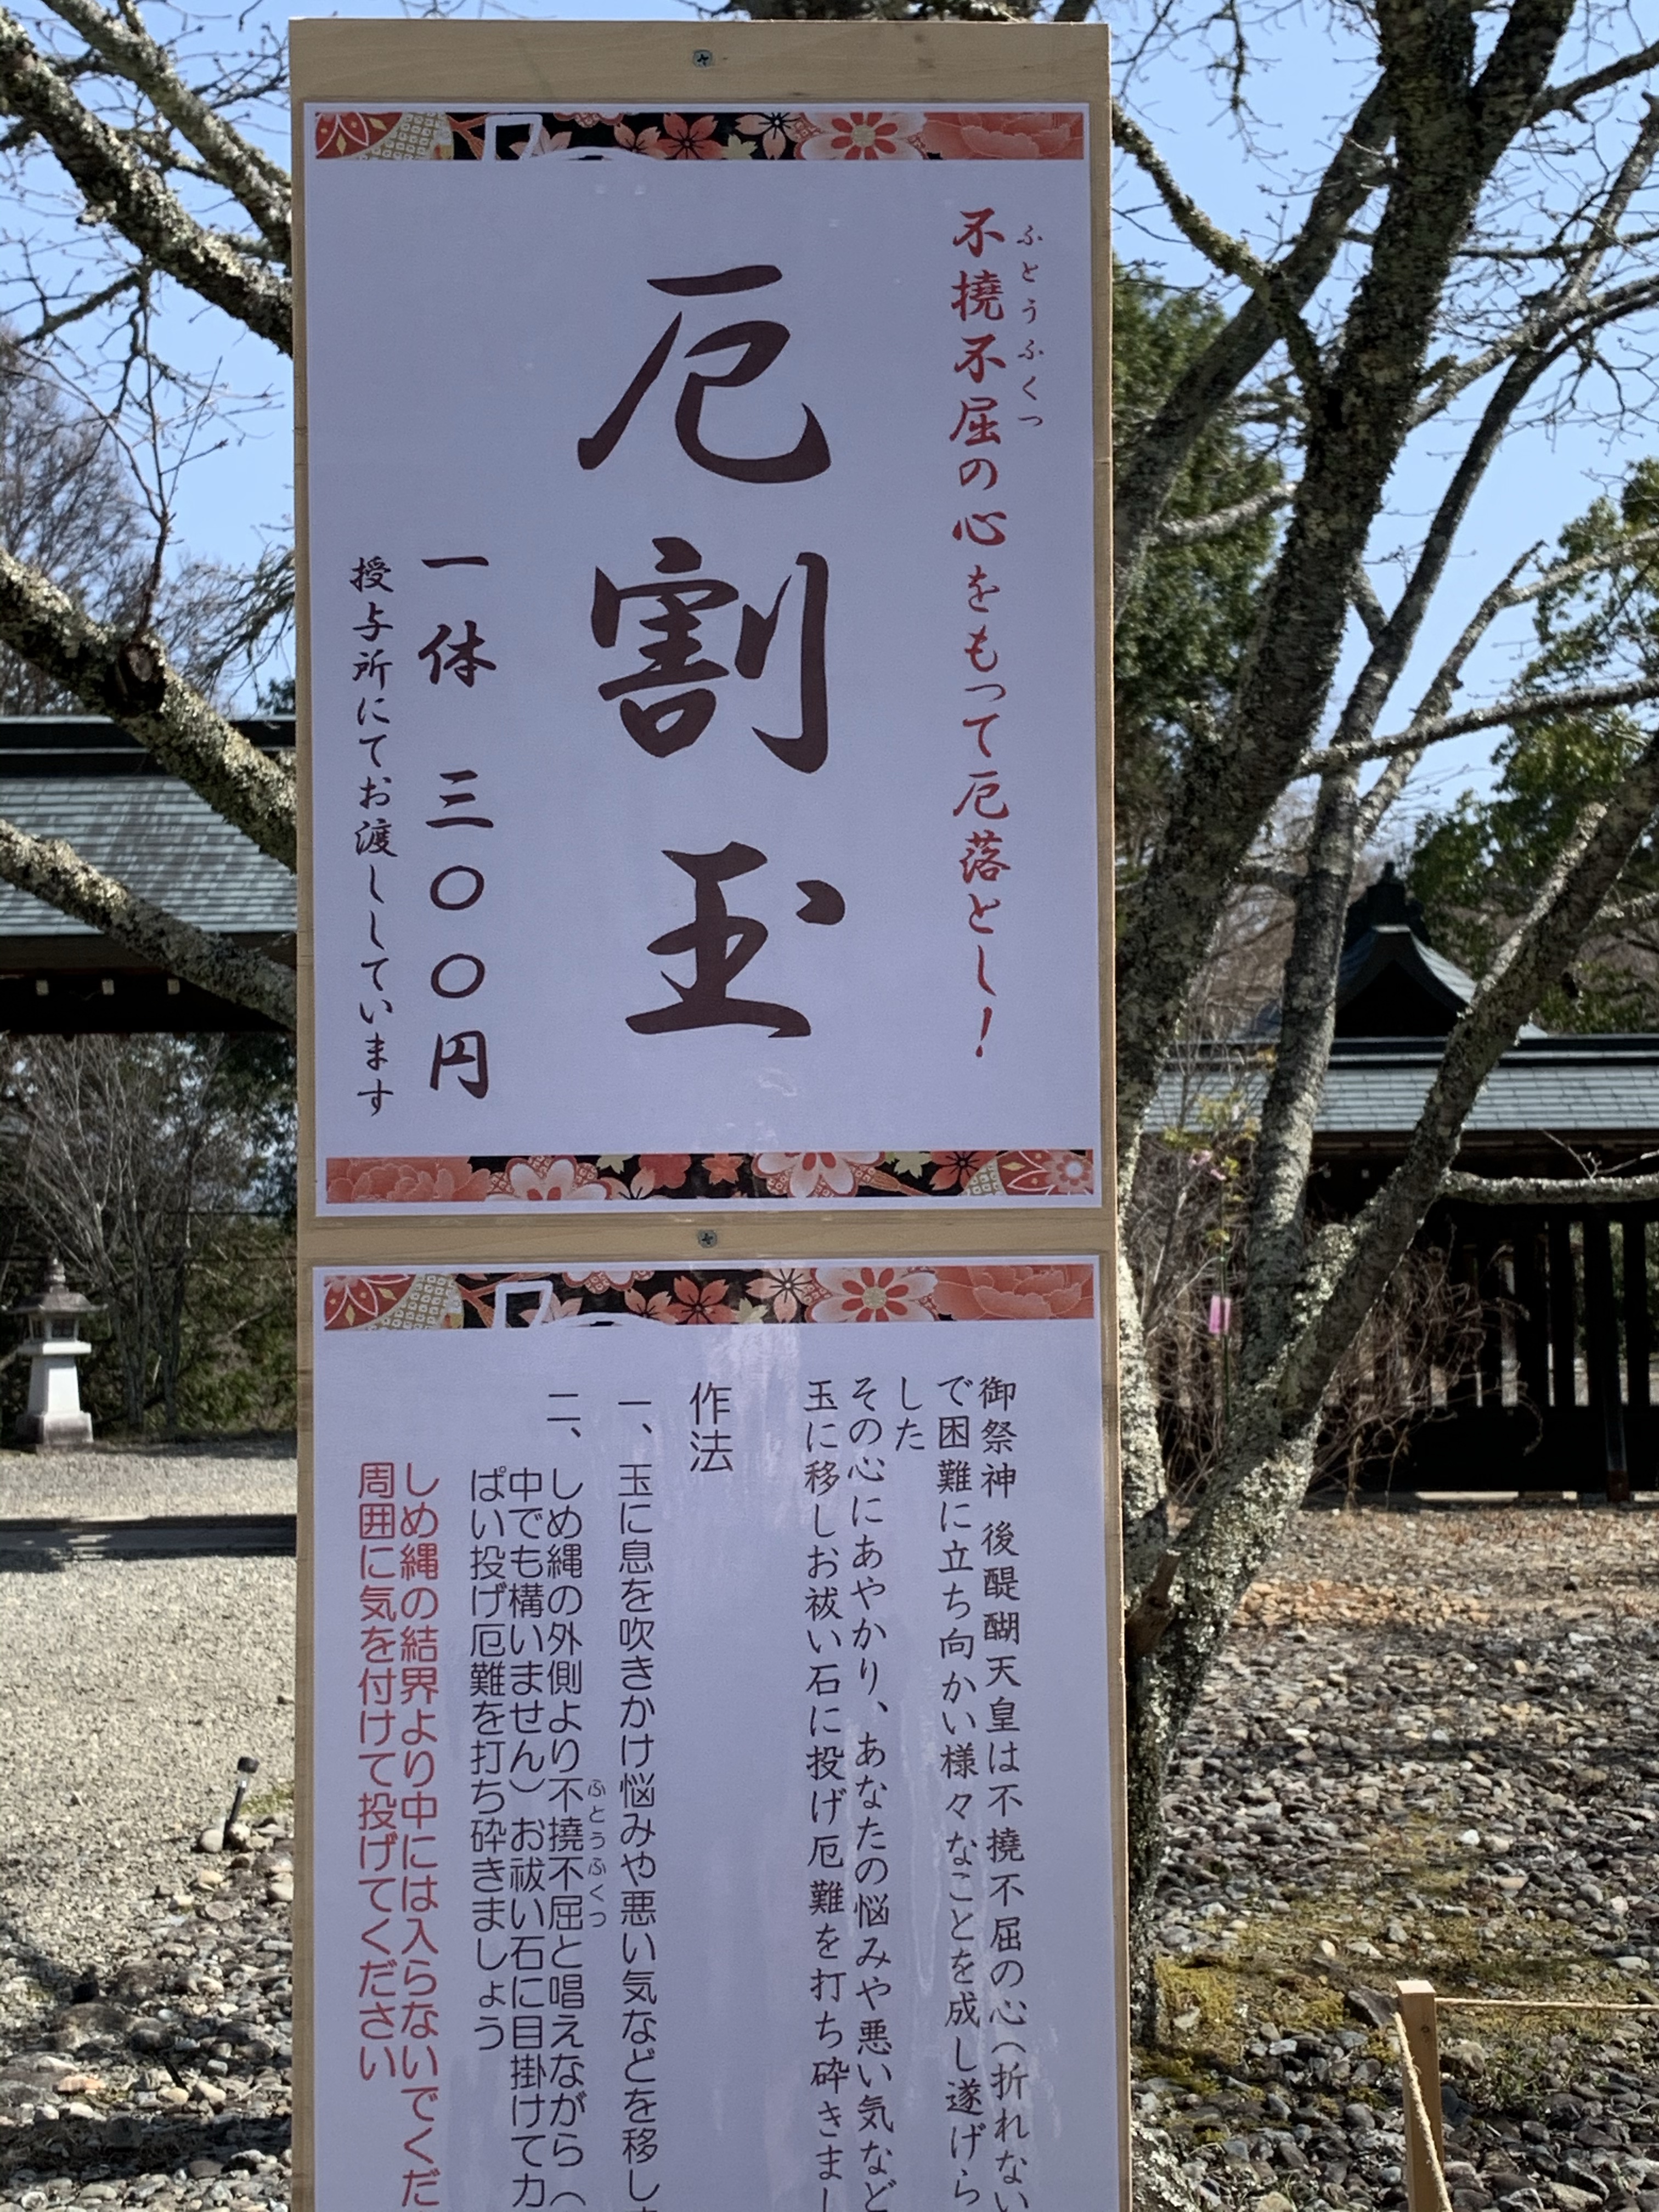 不撓不屈の心をもって厄落とし！
ふとうふくつ
厄割玉
一体 三〇〇円
授与所にてお渡ししています
御祭神 後醍醐天皇は不撓不屈の心（折れない
で困難に立ち向かい様々なことを成し遂げら
した
その心にあやかり、あなたの悩みや悪い気など
玉に移しお祓い石に投げ厄難を打ち砕きまし
作法
一、玉に息を吹きかけ悩みや悪い気などを移し
二、しめ縄の外側より不撓不屈と唱えながら（
ふとうふくつ
中でも構いません）お祓い石に目掛けて力
ぱい投げ厄難を打ち砕きましょう
しめ縄の結界より中には入らないでくだ
周囲に気を付けて投げてください